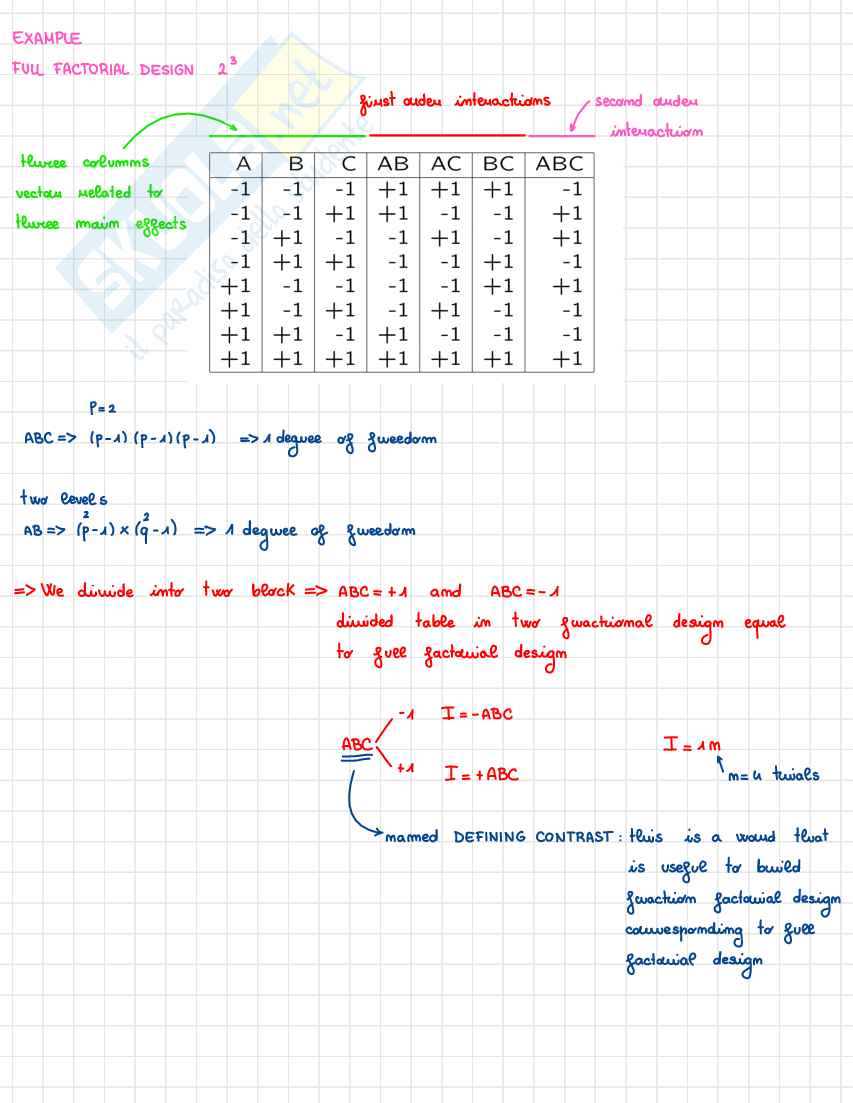 EXAMPLE
FULL FACTORIAL DESIGN 2³
first order interactions
second order
interaction
three columns
vector related to
three main effects
A B C AB AC BC ABC
-1 -1 -1 +1 +1 +1 -1
-1 -1 +1 +1 -1 -1 +1
-1 +1 -1 -1 +1 -1 +1
-1 +1 +1 -1 -1 +1 -1
+1 -1 -1 -1 -1 +1 +1
+1 -1 +1 -1 +1 -1 -1
+1 +1 -1 +1 -1 -1 -1
+1 +1 +1 +1 +1 +1 +1
SKUOLA.net
il paradiso dello studente
P=2
ABC => (p-1) (p-1) (p-1) => 1 degree of freedom
two levels
2 2
AB => (p-1) × (q-1) => 1 degree of freedom
=> We divide into two block => ABC=+1 and ABC=-1
divided table in two fractional design equal
to full factorial design
-1 I=-ABC
ABC
+1 I=+ABC
I = 1n
n=4 trials
named DEFINING CONTRAST: this is a word that
is useful to build
fraction factorial design
corresponding to full
factorial design